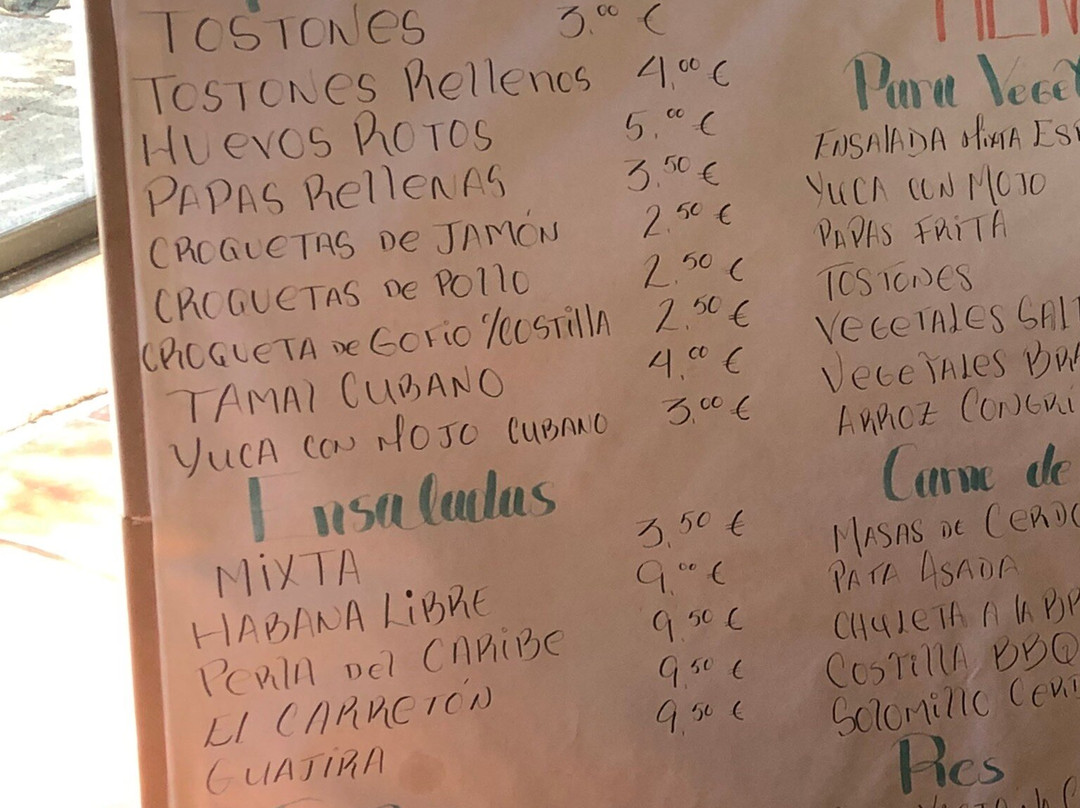 TOSTONES 3.00 €
TOSTONES Rellenos 4.00 €
HUEVOS ROTOS 5.00 €
PAPAS RellENAS 3.50 €
CROQUETAS DE JAMÓN 2.50 €
CROQUETAS DE POllO 2.50 €
CROQUETA DE GOFIO C/COSTillA 2.50 €
TAMAl CUBANO 4.00 €
YUCA CON MOJO CUBANO 3.00 €
Ensaladas
MiXTA 3.50 €
HABANA LiBRE 9.00 €
PERlA DEl CARiBE 9.50 €
El CARRETÓN 9.50 €
GUAJiRA 9.50 €
MEN
Para Veget
ENSAlADA MixTA ESP
YUCA CON MOJO
PAPAS FRiTA
TOSTONES
VEGETALES SALT
VEGETALES BRA
ARROZ CONGRi
Carne de
MASAS DE CERDO
PATA ASADA
CHULETA A lA
COSTillA BBQ
SOlOMillO CER
Res